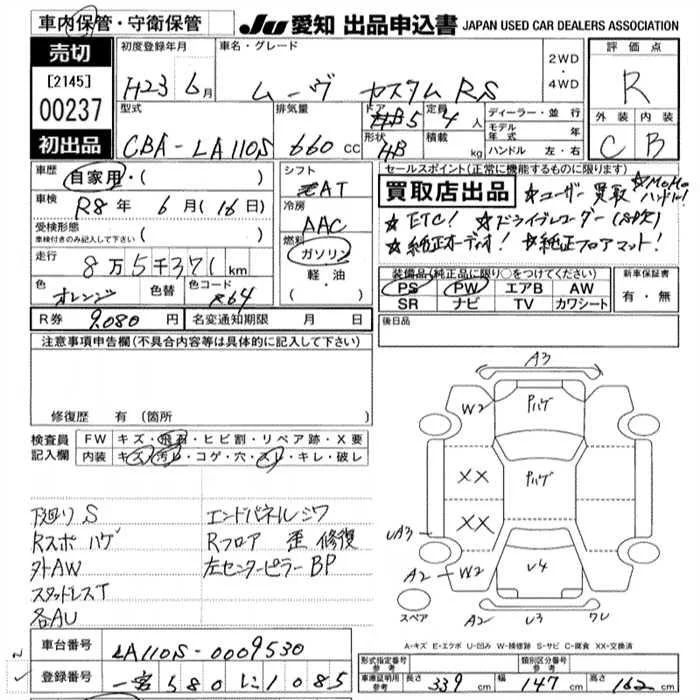 車内保管・守衛保管
JU 愛知 出品申込書 JAPAN USED CAR DEALERS ASSOCIATION
売切
[2145]
00237
初出品
初度登録年月
H23 6月
車名・グレード
ムーヴ カスタムRS
2WD
・
4WD
評価点
R
外装 内装
C B
型式
CBA-LA110S
排気量
660 cc
ドア
5
形状
HB
定員
4 人
積載
kg
ディーラー・並行
モデル年式 年
ハンドル 左・右
車歴
自家用・( )
車検
R8年 6月(16日)
受検形態
車検付きのみ記入して下さい ( )
走行
8万5千371km
色
オレンジ
色替
色コード
R64
シフト
AT
冷房
AAC
燃料
ガソリン
軽・油
・( )
セールスポイント(正常に機能するものに限ります)
買取店出品
☆ユーザー買取 ☆MOMOハンドル!
☆ETC! ☆ドライブレコーダー(SP欠)
☆純正オーディオ! ☆純正フロアマット!
装備品(純正品に限り○をつけてください)
PS PW エアB AW
SR ナビ TV カワシート
新車保証書
有・無
後日品
R券 9,080円 名変通知期限 月 日
注意事項申告欄(不具合内容等は具体的に記入して下さい)
修復歴 有(箇所
検査員記入欄
FW キズ・飛石・ヒビ割・リペア跡・X要
内装 キズ・汚レ・コゲ・穴・スレ・キレ・破レ
下廻りS エンドパネルシワ
Rスポハゲ Rフロア 歪 修復
外AW 左センターピラーBP
スタッドレスT
各AU
A3
W2
Pハゲ
XX
Pハゲ
XX
UA3
A2 W2
U4
スペア
A2 U3 ワレ
A-キズ E-エクボ U-凹み W-補修跡 S-サビ C-腐食 XX-交換済
車台番号
LA110S-0009530
登録番号
一宮 580 に 1085
形式指定番号 参考
類別区分番号 参考
車庫証明用 参考
長さ 339 cm 幅 147 cm 高さ 162 cm